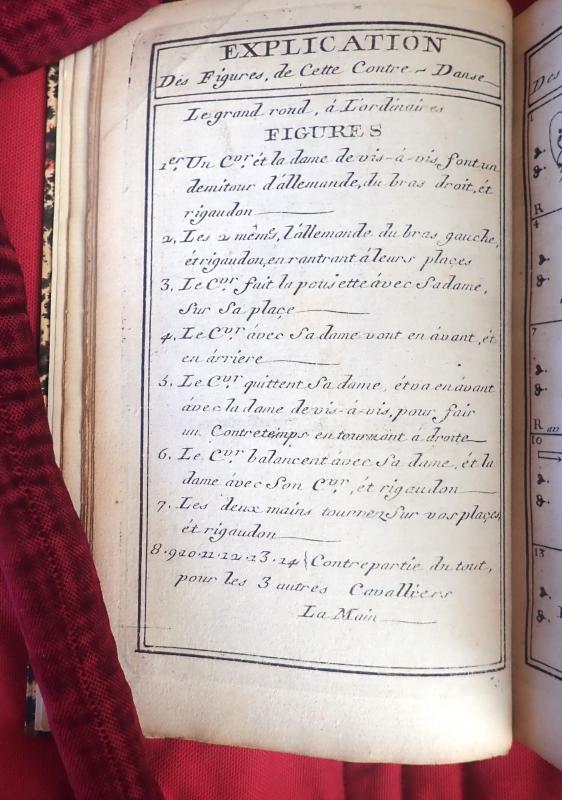 EXPLICATION
Dés Figures, de Cette Contre-Danse
Le grand rond, á L'ordinaires
FIGURES
1er Un Cvr ét la dame de vis-á-vis, font un
demitour d'állemande, du bras droit, ét
rigaudon
2. Les 2 mêmes, l'állemande du bras gauche,
ét rigaudon, en rantrant á leurs plaçes
3. Le Cvr fait la pousette ávec Sa dame,
Sur Sa plaçe
4. Le Cvr ávec Sa dame vont en ávant, ét
en árriere
5. Le Cvr quittent Sa dame, ét va en ávant
ávec la dame de vis-á-vis, pour fair
un Contretemps en tournont á droite
6. Le Cvr balancent ávec Sa dame, ét la
dame ávec Son Cvr, ét rigaudon
7. Les deux mains tournez Sur vos plaçes,
ét rigaudon
8.9.10.11.12.13.14 Contrepartie du tout,
pour les 3 autres Cavalliers
La Main
Des
1
R
4
7
R av
10
13